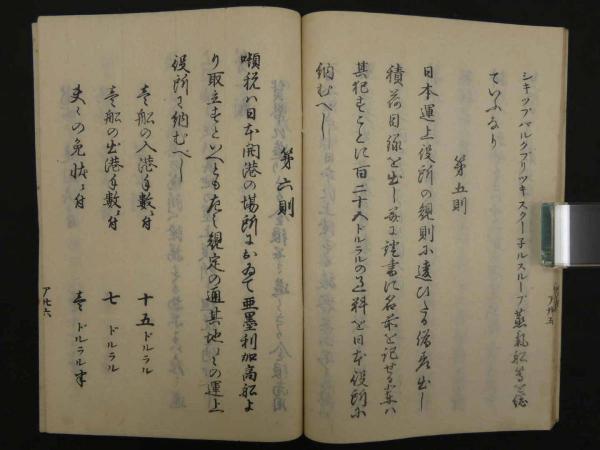 シキップバルクブリッキスクー子ルスループ蒸気船等を総
ていふなり
第五則
日本運上役所の規則に違ひたる偽差出し
積荷目録を出し或は証書に名前を記せる輩ハ
其犯すことに百二十五ドルラルの過料を日本役所に
納むべし
ア艸五
第六則
噸税ハ日本開港の場所におゐて亜墨利加商船よ
り取立すといへとも左之規定の通其地々々の運上
役所に納むべし
壱船の入港手数ニ付 十五ドルラル
壱船の出港手数ニ付 七ドルラル
夫々の免状ニ付 壱ドルラル半
ア艸六